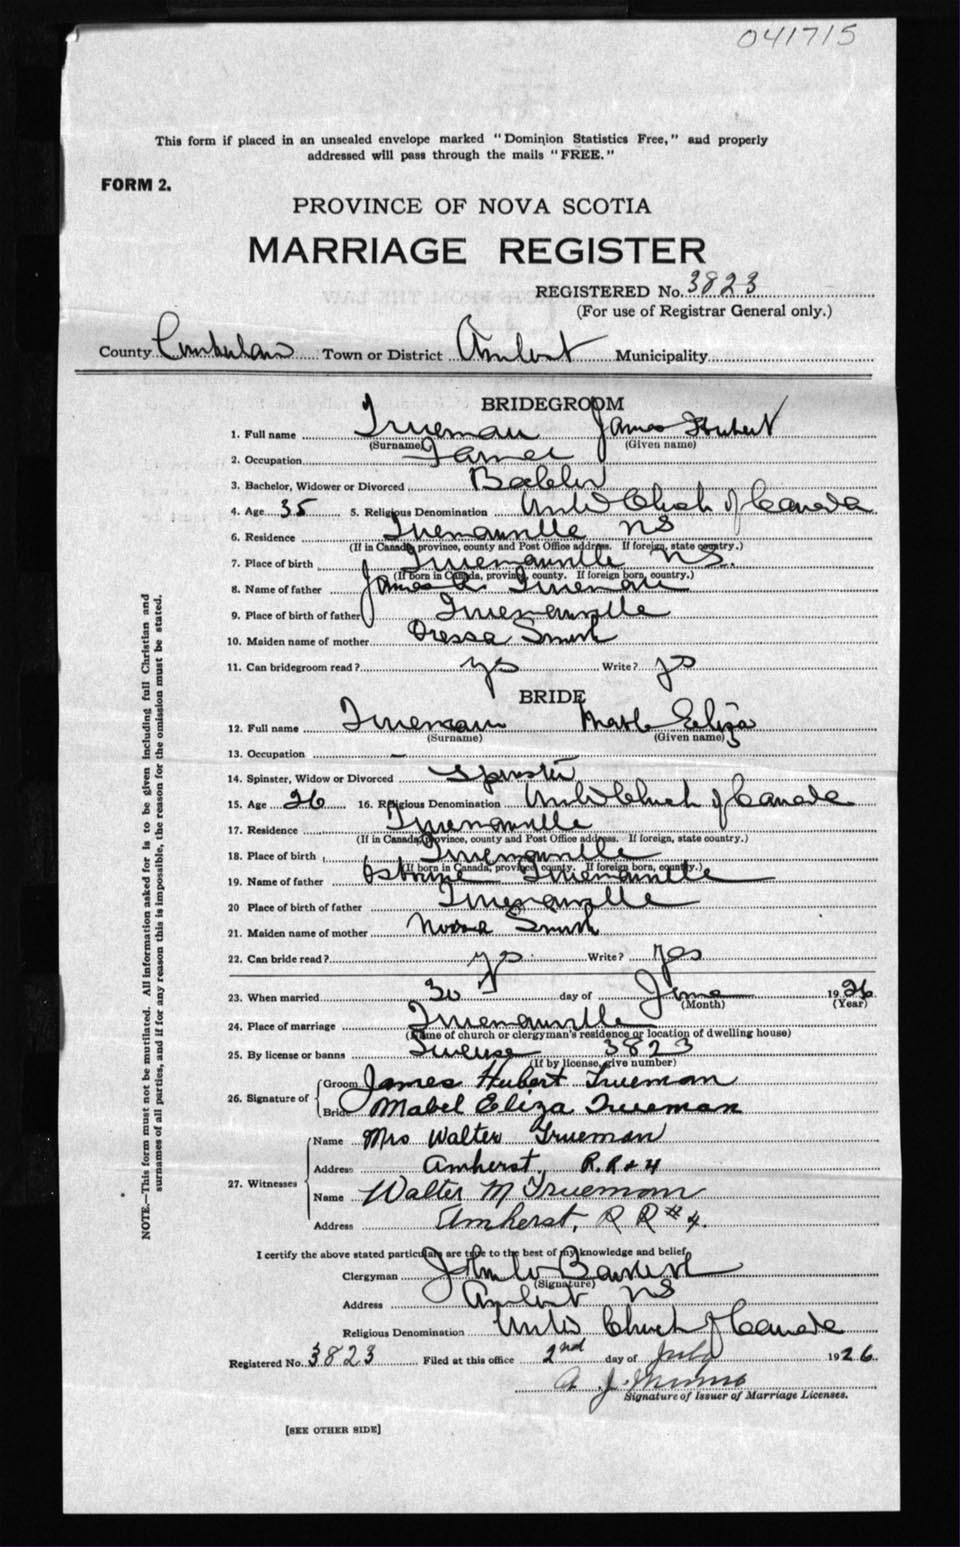 041715
This form if placed in an unsealed envelope marked "Dominion Statistics Free," and properly
addressed will pass through the mails "FREE."
FORM 2.
PROVINCE OF NOVA SCOTIA
MARRIAGE REGISTER
REGISTERED No. 3823
(For use of Registrar General only.)
County Cumberland Town or District Amherst Municipality
BRIDEGROOM
1. Full name Trueman James Hubert
(Surname) (Given name)
2. Occupation Farmer
3. Bachelor, Widower or Divorced Bachelor
4. Age 35 5. Religious Denomination United Church of Canada
6. Residence Truemanville NS
(If in Canada, province, county and Post Office address. If foreign, state country.)
7. Place of birth Truemanville NS.
(If born in Canada, province, county. If foreign born, country.)
8. Name of father James Trueman
9. Place of birth of father Truemanville
10. Maiden name of mother Smith
11. Can bridegroom read? yes Write? yes
BRIDE
12. Full name Trueman Mable Eliza
(Surname) (Given name)
13. Occupation —
14. Spinster, Widow or Divorced Spinster
15. Age 26 16. Religious Denomination United Church of Canada
17. Residence Truemanville
(If in Canada, province, county and Post Office address. If foreign, state country.)
18. Place of birth Truemanville
(If born in Canada, province, county. If foreign born, country.)
19. Name of father Osborne Truemanville
20 Place of birth of father Truemanville
21. Maiden name of mother Smith
22. Can bride read? yes Write? yes
23. When married 30 day of June 1926
(Month) (Year)
24. Place of marriage Truemanville
(Name of church or clergyman's residence or location of dwelling house)
25. By license or banns License 3823
(If by license, give number)
26. Signature of Groom James Hubert Trueman
Bride Mabel Eliza Trueman
27. Witnesses Name Mrs Walter Trueman
Address Amherst, R.R # 4
Name Walter M Trueman
Address Amherst, R R # 4.
I certify the above stated particulars are true to the best of my knowledge and belief.
Clergyman John W
(Signature)
Address Amherst NS
Religious Denomination United Church of Canada
Registered No. 3823 Filed at this office 2nd day of July 1926.
A. J. Munro
Signature of Issuer of Marriage Licenses.
[SEE OTHER SIDE]
NOTE.—This form must not be mutilated. All information asked for is to be given including full Christian and
surnames of all parties, and if for any reason this is impossible, the reason for the omission must be stated.